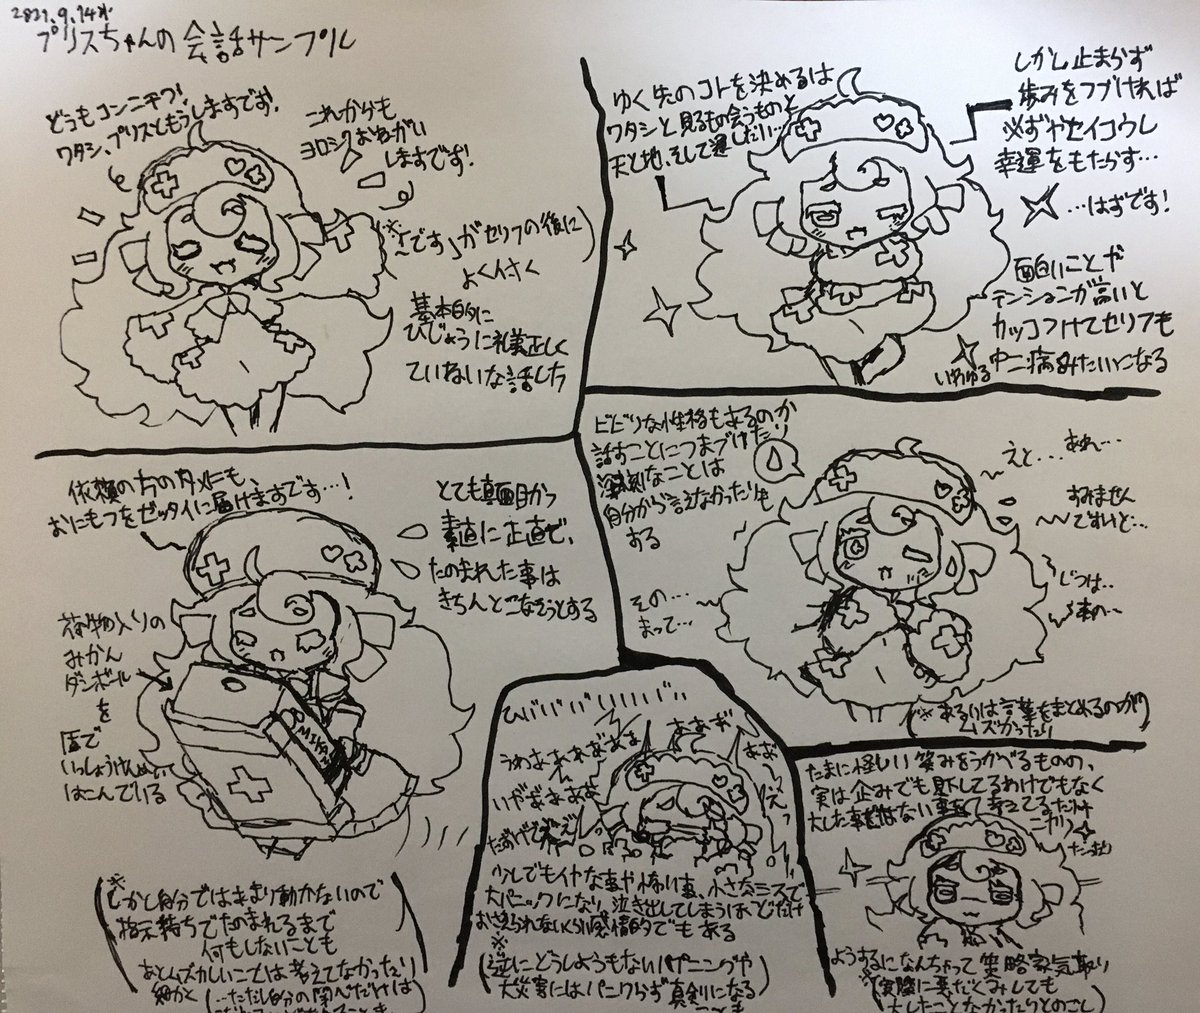 2021.9.14火
プリスちゃんの会話サンプル
どうもコンニチワ!
ワタシ、プリスともうしますです!
これからも
ヨロシクおねがい
しますです!
(※「~です」がセリフの後に
よく付く)
基本的に
ひじょうに礼儀正しく
ていねいな話し方
ゆく先のコトを決めるは
ワタシと見るもの会うものと
天と地、そして運しだい…
しかし止まらず
歩みをつづければ
必ずやセイコウし
幸運をもたらす…
…はずです!
面白いことや
テンションが高いと
カッコつけてセリフも
いわゆる中二病みたいになる
依頼の方のタメにも、
おにもつをゼッタイに届けますです…!
とても真面目かつ
素直に正直で、
たのまれた事は
きちんとこなそうとする
荷物入りの
みかん
ダンボール
を
盾で
いっしょうけんめい
はこんでいる
MIKAN
(※しかと自分ではあまり動かないので
指示待ちでたのまれるまで
何もしないことも
あとムズカしいことは考えてなかったり
ビビリな性格もあるのか
話すことにつまづけたり
深刻なことは
自分から言えなかったりも
する
えと…あれ…
すみません
ですけど…
じつは…
その…
まって…
(※あるいは言葉をまとめるのが
ムズかったり)
少しでもイヤな事や怖い事、小さなミスで
大パニックになり、泣き出してしまうほどだけ
おさえられないくらい感情的でもある
(※逆にどうしようもないハプニングや
大災害にはパニクらず真剣になる
たまに怪しい笑みをうかべるものの、
実は企みでも見下してるわけでもなく
大した事ではない事を考えてるだけ
ニヤリ
ようするになんちゃって策略家気取り
(※実際に悪だくみしても
大したことなかったりとのこと)